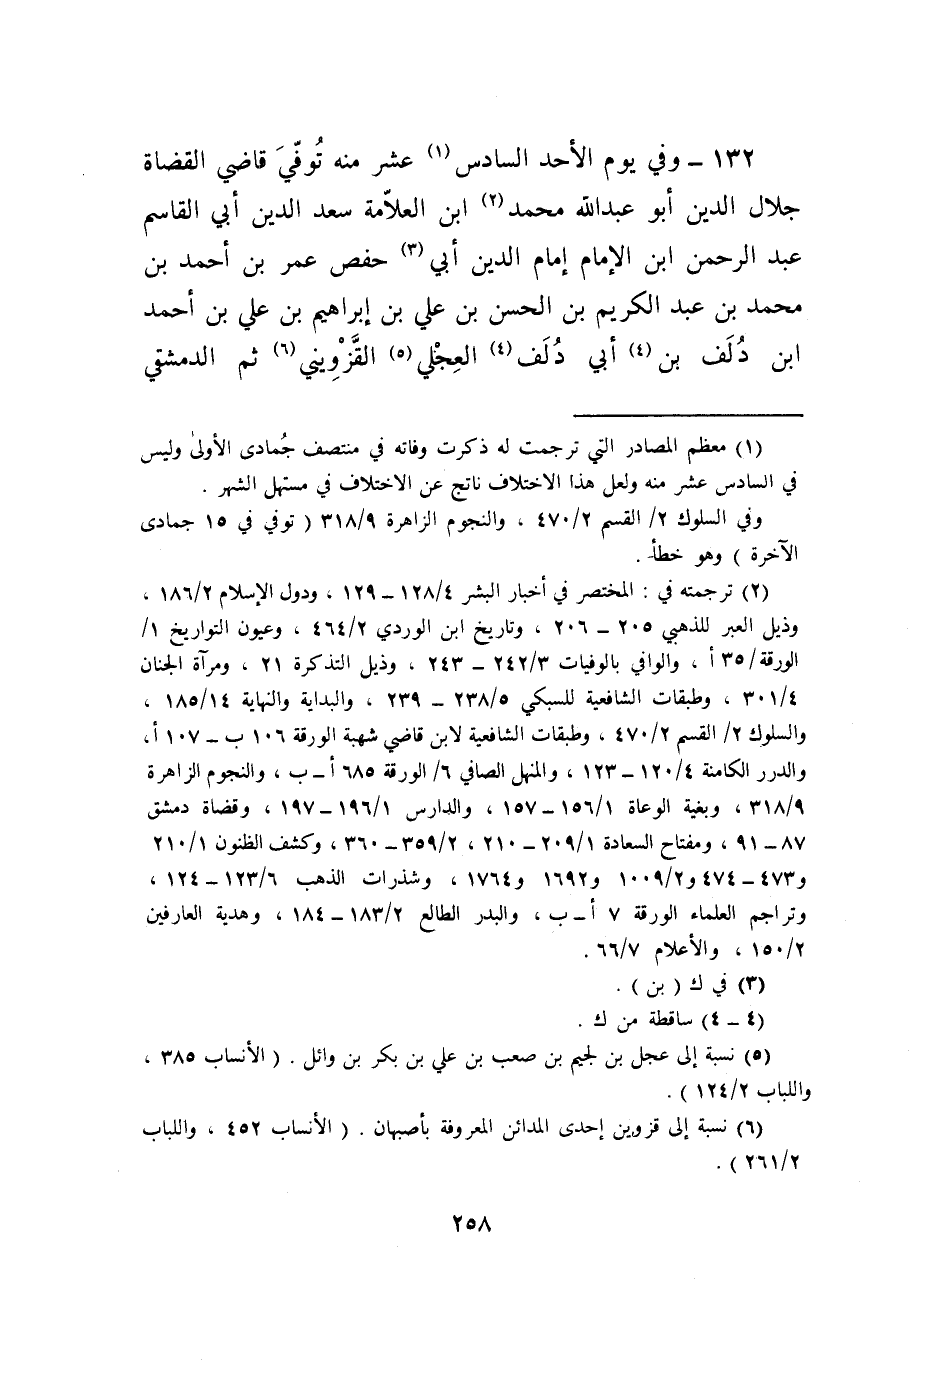 ١٣٢ ـ وفي يوم الأحد السادس(١) عشر منه تُوفّيَ قاضي القضاة
جلال الدين أبو عبدالله محمد(٢) ابن العلاّمة سعد الدين أبي القاسم
عبد الرحمن ابن الإمام إمام الدين أبي(٣) حفص عمر بن أحمد بن
محمد بن عبد الكريم بن الحسن بن علي بن إبراهيم بن علي بن أحمد
ابن دُلَف بن(٤) أبي دُلَف(٤) العِجْلي(٥) القَّزْوِيني(٦) ثم الدمشقي
(١) معظم المصادر التي ترجمت له ذكرت وفاته في منتصف جُمادى الأولىٰ وليس
في السادس عشر منه ولعل هذا الاختلاف ناتج عن الاختلاف في مستهل الشهر .
وفي السلوك ٢/ القسم ٤٧٠/٢ ، والنجوم الزاهرة ٣١٨/٩ ( توفي في ١٥ جمادى
الآخرة ) وهو خطأ .
(٢) ترجمته في : المختصر في أخبار البشر ١٢٨/٤ ــ ١٢٩ ، ودول الإسلام ١٨٦/٢ ،
وذيل العبر للذهبي ٢٠٥ ــ ٢٠٦ ، وتاريخ ابن الوردي ٤٦٤/٢ ، وعيون التواريخ ١/
الورقة/٣٥ أ ، والوافي بالوفيات ٢٤٢/٣ ــ ٢٤٣ ، وذيل التذكرة ٢١ ، ومرآة الجنان
٣٠١/٤ ، وطبقات الشافعية للسبكي ٢٣٨/٥ ــ ٢٣٩ ، والبداية والنهاية ١٨٥/١٤ ،
والسلوك ٢/ القسم ٤٧٠/٢ ، وطبقات الشافعية لابن قاضي شهبة الورقة ١٠٦ ب ــ ١٠٧ أ،
والدرر الكامنة ١٢٠/٤ ــ ١٢٣ ، والمنهل الصافي ٦/ الورقة ٦٨٥ أ ــ ب ، والنجوم الزاهرة
٣١٨/٩ ، وبغية الوعاة ١٥٦/١ ــ ١٥٧ ، والدارس ١٩٦/١ ــ ١٩٧ ، وقضاة دمشق
٨٧ ــ ٩١ ، ومفتاح السعادة ٢٠٩/١ ــ ٢١٠ ، ٣٥٩/٢ ــ ٣٦٠ ، وكشف الظنون ٢١٠/١
و٤٧٣ ــ ٤٧٤ و١٠٠٩/٢ و١٦٩٢ و١٧٦٤ ، وشذرات الذهب ١٢٣/٦ ــ ١٢٤ ،
وتراجم العلماء الورقة ٧ أ ــ ب ، والبدر الطالع ١٨٣/٢ ــ ١٨٤ ، وهدية العارفين
١٥٠/٢ ، والأعلام ٦٦/٧ .
(٣) في ك ( بن ) .
(٤ ــ ٤) ساقطة من ك .
(٥) نسبة إلى عجل بن لجيم بن صعب بن علي بن بكر بن وائل . ( الأنساب ٣٨٥ ،
واللباب ١٢٤/٢ ) .
(٦) نسبة إلى قزوين إحدى المدائن المعروفة بأصبهان . ( الأنساب ٤٥٢ ، واللباب
٢٦١/٢ ) .
٢٥٨